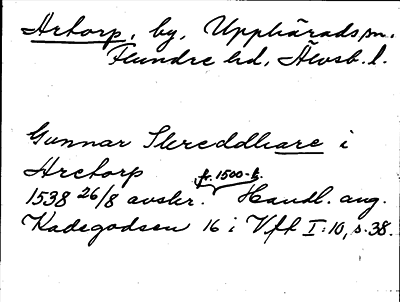 Artorp, by, Upphäradssn.
Flundre hd, Älvsb. l.
Gunnar Skreddhare i
Aretorp
fr. 1500-t.
1538 26/8 avskr. Handl. ang.
Kadsgodsen 16 i Vft I:10, s. 38.